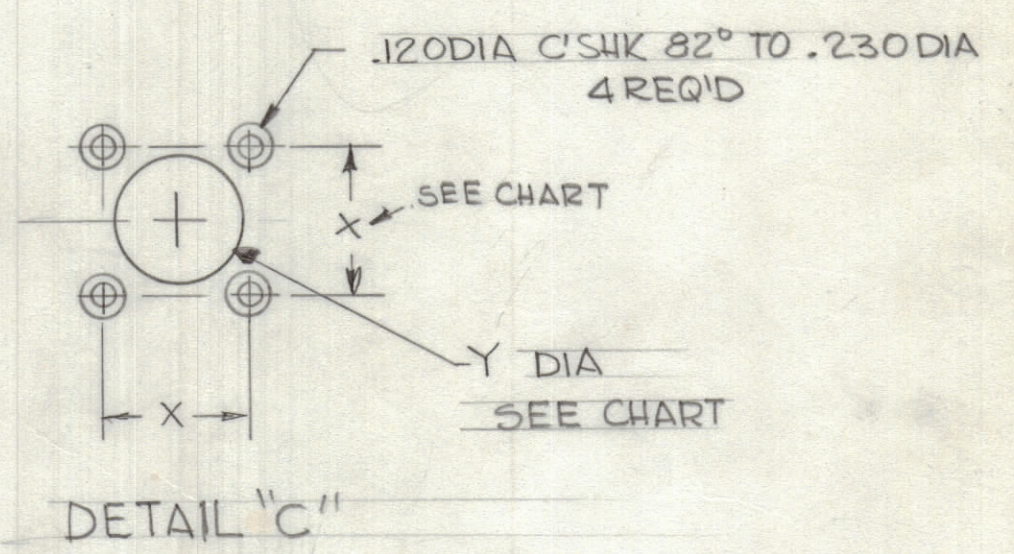 .120DIA C'SHK 82° TO .230DIA
4 REQ'D
SEE CHART
X
Y DIA
SEE CHART
X
DETAIL "C"